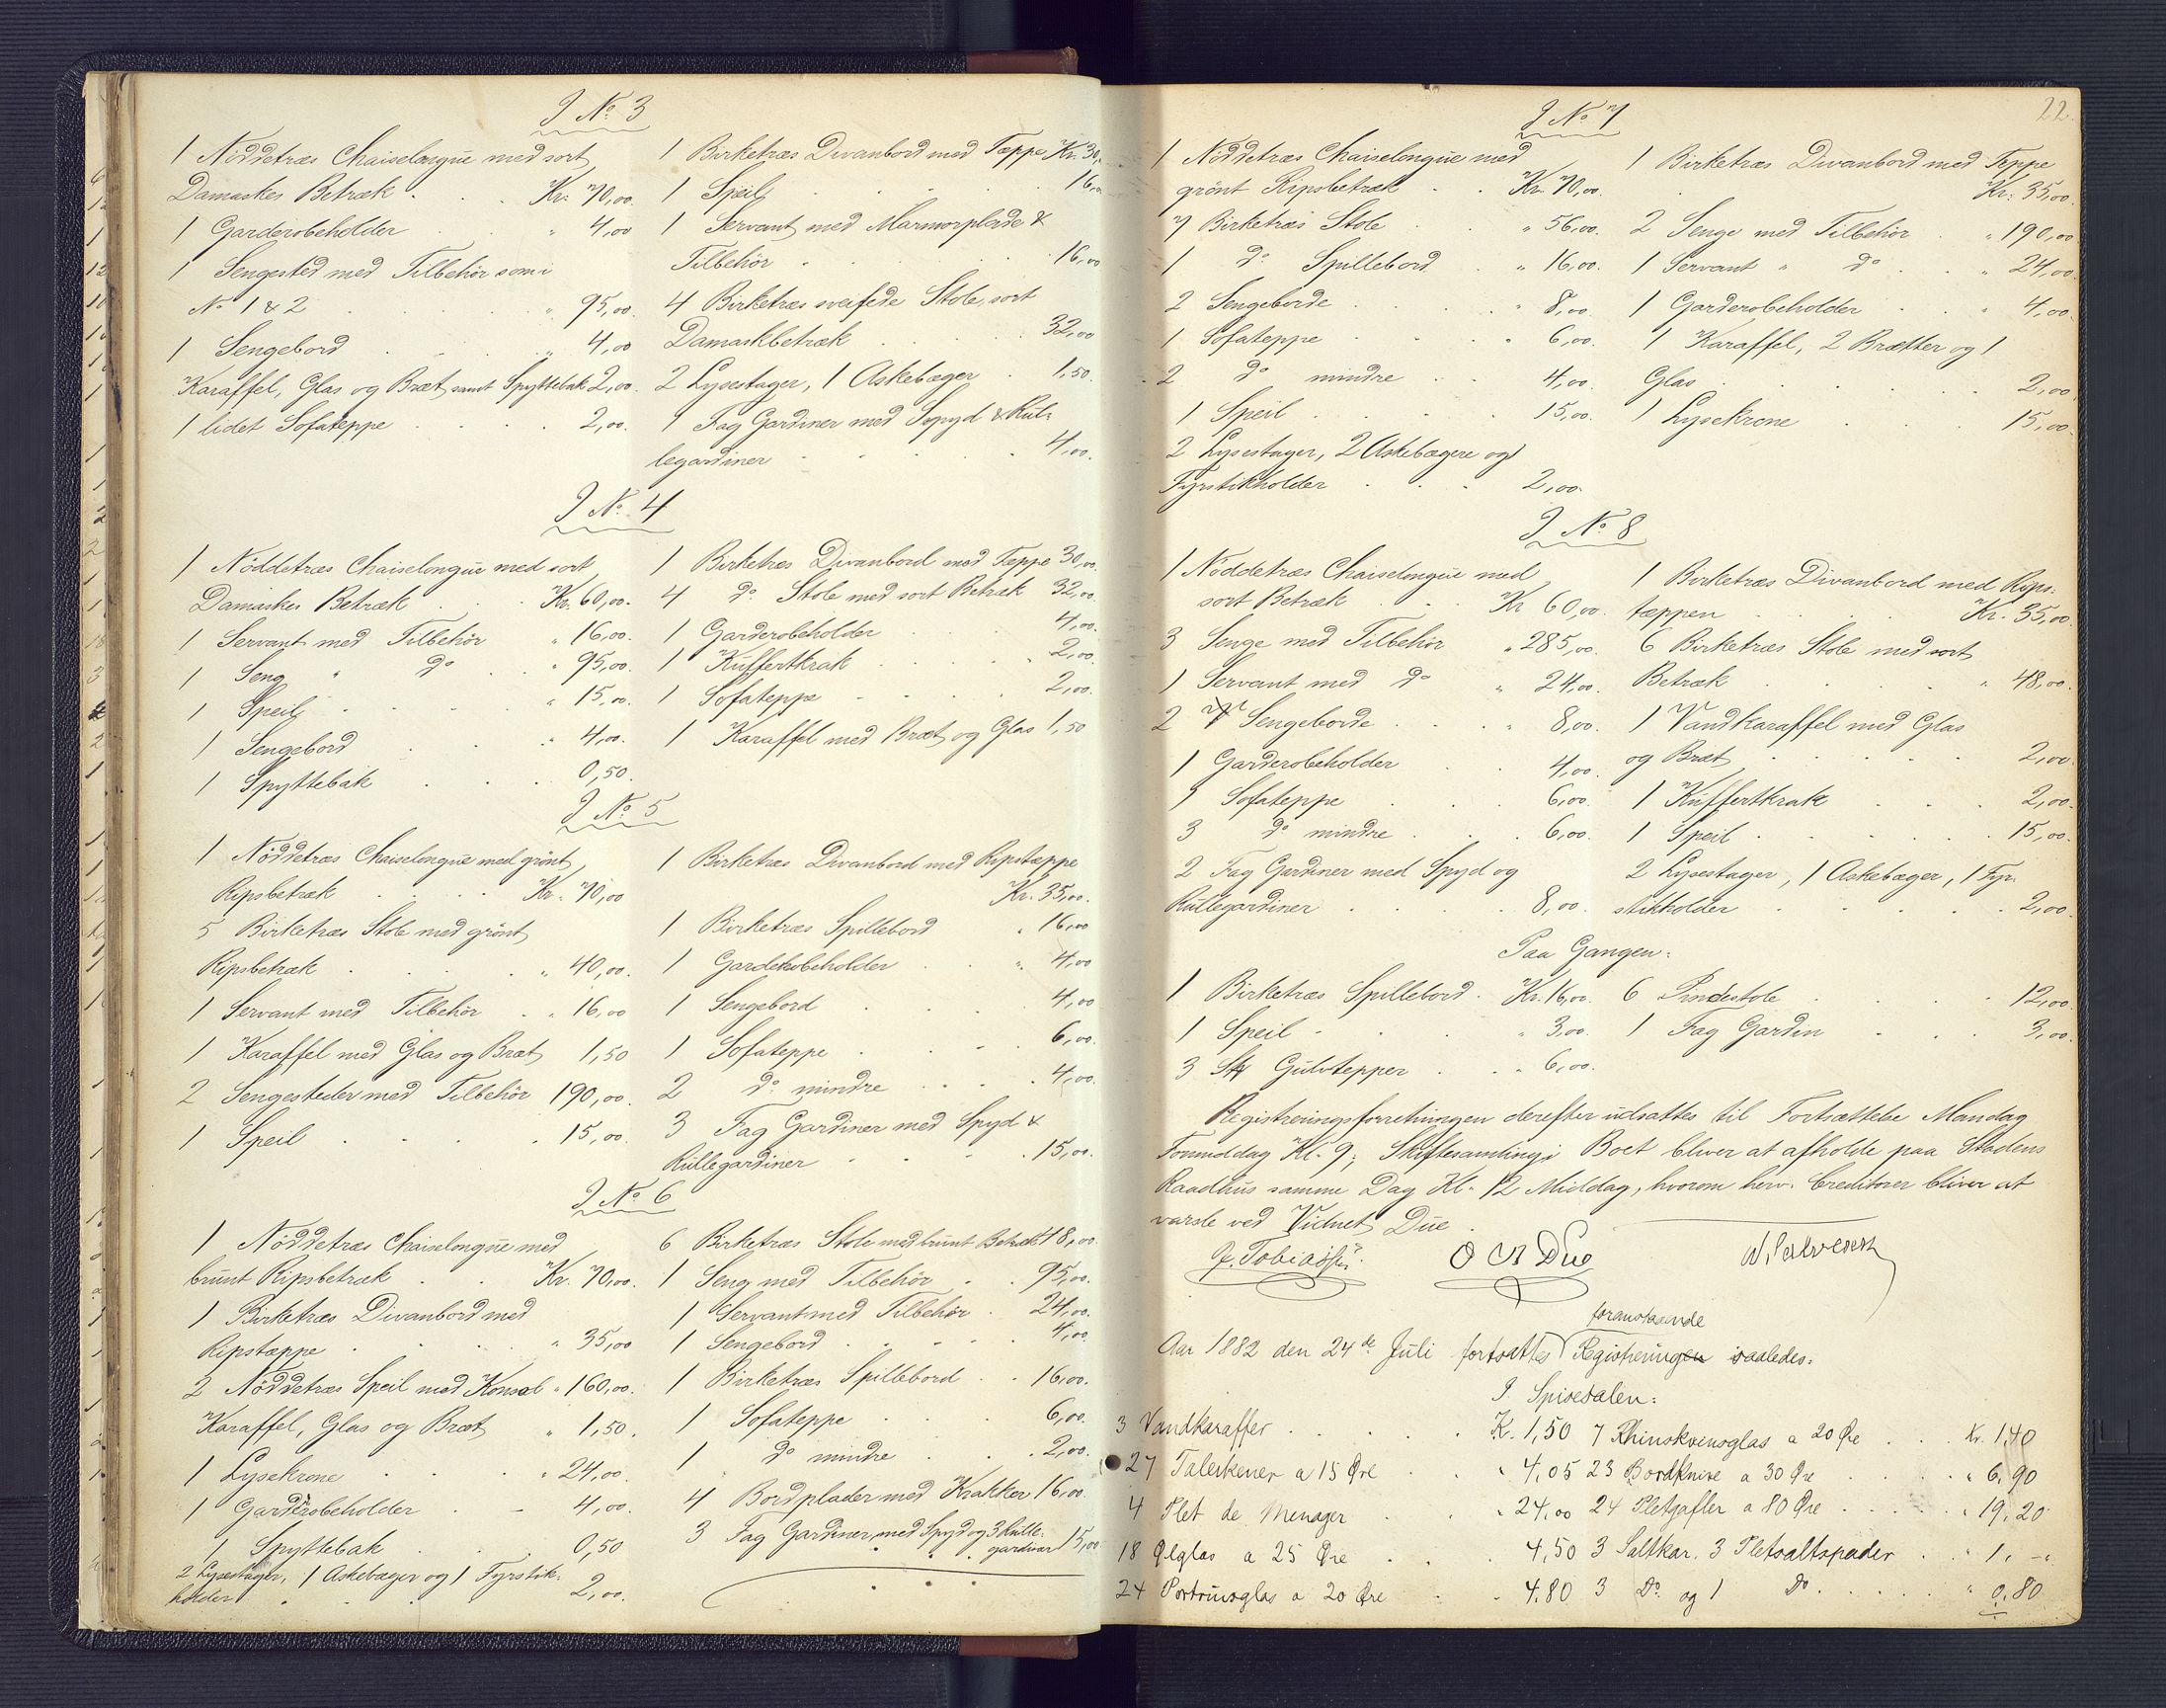 I No 3
1 Nöddetræs Chaiselongue med sort
Damaskes Betræk . . . Kr. 70,00.
1 Garderobeholder . . " 4,00
1 Sengested med Tilbehör som i
No 1 & 2 . . . " 95,00.
1 Sengebord . . . " 4,00
Karaffel, Glas og Bræt, samt Spyttebak 2,00.
1 lidet Sofateppe . . . 2,00.
1 Birketræs Divanbord med Tæppe Kr. 30,
1 Speil . . . 16,00
1 Servant med Marmorplade &
Tilbehör . . . 16,00
4 Birketræs svaifede Stole, sort
Damaskbetræk . . . 32,00
2 Lysestager, 1 Askebæger . 1,50.
1 Fag Gardiner med Spyd & Rul=
legardiner . . . 4,00.
I No. 4
1 Nöddetræs Chaiselongue med sort
Damaskes Betræk . . Kr. 60,00.
1 Servant med Tilbehör " 16,00.
1 Seng " do . " 95,00.
1 Speil . . . " 15,00.
1 Sengebord . . " 4,00.
1 Spyttebak . . . 0,50.
1 Birketræs Divanbord med Tæppe 30,00.
4 do. Stole med sort Betræk 32,00.
1 Garderobeholder . . 4,00.
1 Kuffertkrak . . . 2,00.
1 Sofateppe . . . 2,00.
1 Karaffel med Bræt og Glas 1,50
I No. 5
1 Nöddetræs Chaiselongue med grönt
Ripsbetræk . . . Kr. 70,00
5 Birketræs Stole med grönt
Ripsbetræk . . . " 40,00.
1 Servant med Tilbehör . " 16,00
1 Karaffel med Glas og Bræt 1,50
2 Sengesteder med Tilbehör 190,00.
1 Speil . . . . 15,00.
1 Birketræs Divanbord med Ripstæppe
Kr. 35,00.
1 Birketræs Spillebord " 16,00
1 Garderobeholder . . " 4,00
1 Sengebord . . . 4,00
1 Sofateppe . . . 6,00.
2 do. mindre . . . 4,00.
3 Fag Gardiner med Spyd &
Rullegardiner . . . 15,00.
I No. 6
1 Nöddetræs Chaiselongue med
brunt Ripsbetræk . . Kr. 70,00.
1 Birketræs Divanbord med
Ripstæppe . . . " 35,00
2 Nöddetræs Speil med Konsol " 160,00.
Karaffel, Glas og Bræt " 1,50.
1 Lysekrone . . " 24,00.
1 Garderobeholder . - 4,00.
1 Spyttebak . . . 0,50
2 Lysestager, 1 Askebæger og 1 Fyrstik=
holder . . . 2,00.
6 Birketræs Stole med brunt Betræk 48,00.
1 Seng med Tilbehör . . 95,00.
1 Servant med Tilbehör . 24,00.
1 Sengebord . . . 4,00.
1 Birketræs Spillebord . . 16,00.
1 Sofateppe . . . 6,00.
1 do. mindre . . . 2,00.
4 Bordplader med Krakker 16,00.
3 Fag Gardiner, med Spyd og 3 Rulle=
gardiner 15,00
22.
I No 7
1 Nöddetræs Chaiselongue med
grönt Ripsbetræk . . Kr. 70,00.
7 Birketræs Stole . . " 56,00.
1 do. Spillebord . " 16,00.
2 Sengeborde . . . " 8,00.
1 Sofateppe . . . " 6,00.
2 do. mindre . . . 4,00.
1 Speil . . . . 15,00.
2 Lysestager, 2 Askebægere og
Fyrstikholder . . . 2,00.
1 Birketræs Divanbord med Teppe
Kr. 35,00.
2 Senge med Tilbehör . " 190,00
1 Servant " do . . " 24,00.
1 Garderobeholder . . " 4,00.
1 Karaffel, 2 Brætter og 1
Glas . . . . 2,00
1 Lysekrone . . . 15,00.
I No 8
1 Nöddetræs Chaiselongue med
sort Betræk . . . Kr 60,00.
3 Senge med Tilbehör " 285,00.
1 Servant med do " 24,00.
2 Sengeborde . . . " 8,00.
1 Garderobeholder . . 4,00.
1 Sofateppe . . . 6,00.
3 do. mindre . . . 6,00.
2 Fag Gardiner med Spyd og
Rullegardiner . . . 8,00.
1 Birketræs Divanbord med Rips=
tæppen . . . Kr. 35,00.
6 Birketræs Stole med sort
Betræk . . . " 48,00.
1 Vandkaraffel med Glas
og Bræt . . . 2,00.
1 Kuffertkrak . . . 2,00.
1 Speil . . . . 15,00.
2 Lysestager, 1 Askebæger, 1 Fyr=
stikholder . . . 2,00.
Paa Gangen:
1 Birketræs Spillebord . Kr. 16,00.
1 Speil . . . " 3,00.
3 Stk Gulvtepper . . " 6,00.
6 Pindestole . . . 12,00.
1 Fag Gardin . . . 3,00.
Registreringsforretningen derefter udsattes til Fortsættelse Mandag
Formiddag Kl. 9; Skiftesamling i Boet bliver at afholde paa Stadens
Raadhus samme Dag Kl. 12 Middag, hvorom herv. Creditorer bliver at
varsle ved Vidnet Due.
Tobiassen.
Due
foranstaaende
Aar 1882 den 24de Juli fortsattes Registreringen saaledes:
I Spisesalen:
3 Vandkaraffer . . . . K. 1,50
27 Talerkener a 15 Øre . . " 4,05
4 Plet de Menager . . " 24,00
18 Ølglas a 25 Øre . . . 4,50
24 Portvinsglas a 20 Øre . . 4,80
7 Rhinskvinsglas a 20 Øre . . . Kr. 1,40
23 Bordknive a 30 Øre . . . " 6,90
24 Pletgafler a 80 Øre . . . . " 19,20
3 Saltkar, 3 Pletsaltspader . . " 1, -"
3 Do. og 1 Do. . . . . " 0,80